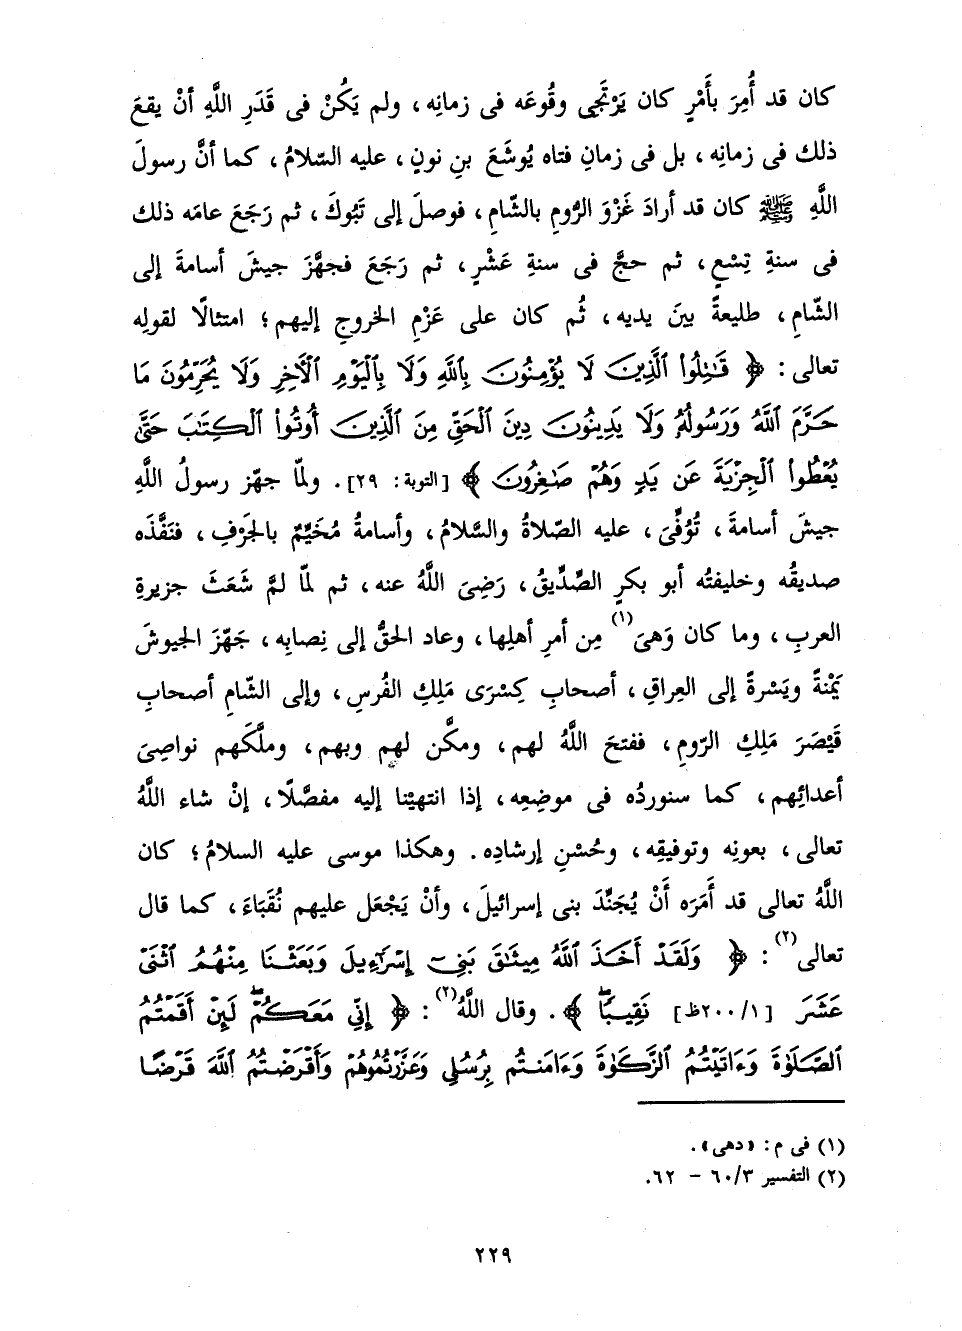 كان قد أُمِرَ بأَمْرٍ كان يَرْتَجِى وقُوعَه فى زمانِه ، ولم يَكُنْ فى قَدَرِ اللَّهِ أنْ يقعَ
ذلك فى زمانِه ، بل فى زمانِ فتاه يُوشَعَ بنِ نونٍ ، عليه السّلامُ ، كما أنَّ رسولَ
اللَّهِ ﷺ كان قد أرادَ غَزْوَ الرُّومِ بالشّامِ ، فوصلَ إلى تَبُوكَ ، ثم رَجَعَ عامَه ذلك
فى سنةِ تِسْعٍ ، ثم حجَّ فى سنةِ عَشْرٍ ، ثم رَجَعَ فجهَّزَ جيشَ أسامةَ إلى
الشّامِ ، طليعةً بينَ يديه ، ثُم كان على عَزْمِ الخروجِ إليهم ؛ امتثالًا لقولِه
تعالى : ﴿ قَٰتِلُوا۟ ٱلَّذِينَ لَا يُؤْمِنُونَ بِٱللَّهِ وَلَا بِٱلْيَوْمِ ٱلْءَاخِرِ وَلَا يُحَرِّمُونَ مَا
حَرَّمَ ٱللَّهُ وَرَسُولُهُۥ وَلَا يَدِينُونَ دِينَ ٱلْحَقِّ مِنَ ٱلَّذِينَ أُوتُوا۟ ٱلْكِتَٰبَ حَتَّىٰ
يُعْطُوا۟ ٱلْجِزْيَةَ عَن يَدٍ وَهُمْ صَٰغِرُونَ ﴾ [التوبة: ٢٩]. ولمّا جهّز رسولُ اللَّهِ
جيشَ أسامةَ ، تُوُفِّىَ ، عليه الصّلاةُ والسَّلامُ ، وأسامةُ مُخَيِّمٌ بالجَرْفِ ، فنَفَّذَه
صديقُه وخليفتُه أبو بكرٍ الصِّدِّيقُ ، رَضِىَ اللَّهُ عنه ، ثم لمّا لمَّ شَعَثَ جزيرةِ
العربِ ، وما كان وَهىَ(١) مِن أمرِ أهلِها ، وعاد الحقُّ إلى نِصابِه ، جَهّزَ الجيوشَ
يَمْنةً ويَسْرةً إلى العِراقِ ، أصحابِ كِسْرَى مَلِكِ الفُرسِ ، وإلى الشّامِ أصحابِ
قَيْصَرَ مَلِكِ الرّومِ ، ففتحَ اللَّهُ لهم ، ومكَّن لهم وبهم ، وملَّكَهم نواصِىَ
أعدائِهم ، كما سنورِدُه فى موضِعِه ، إذا انتهيْنا إليه مفصَّلًا ، إنْ شاء اللَّهُ
تعالى ، بعونِه وتوفيقِه ، وحُسْنِ إرشادِه . وهكذا موسى عليه السلامُ ؛ كان
اللَّهُ تعالى قد أَمَرَه أَنْ يُجَنِّدَ بنى إسرائيلَ ، وأنْ يَجْعَل عليهم نُقَباءَ ، كما قال
تعالى(٢) : ﴿ وَلَقَدْ أَخَذَ ٱللَّهُ مِيثَٰقَ بَنِىٓ إِسْرَٰٓءِيلَ وَبَعَثْنَا مِنْهُمُ ٱثْنَىْ
عَشَرَ [٢٠٠/١ظ] نَقِيبًا ﴾ . وقال اللَّهُ(٢) : ﴿ إِنِّى مَعَكُمْ لَئِنْ أَقَمْتُمُ
ٱلصَّلَوٰةَ وَءَاتَيْتُمُ ٱلزَّكَوٰةَ وَءَامَنتُم بِرُسُلِى وَعَزَّرْتُمُوهُمْ وَأَقْرَضْتُمُ ٱللَّهَ قَرْضًا
(١) فى م : «دهى» .
(٢) التفسير ٦٠/٣ - ٦٢.
٢٢٩